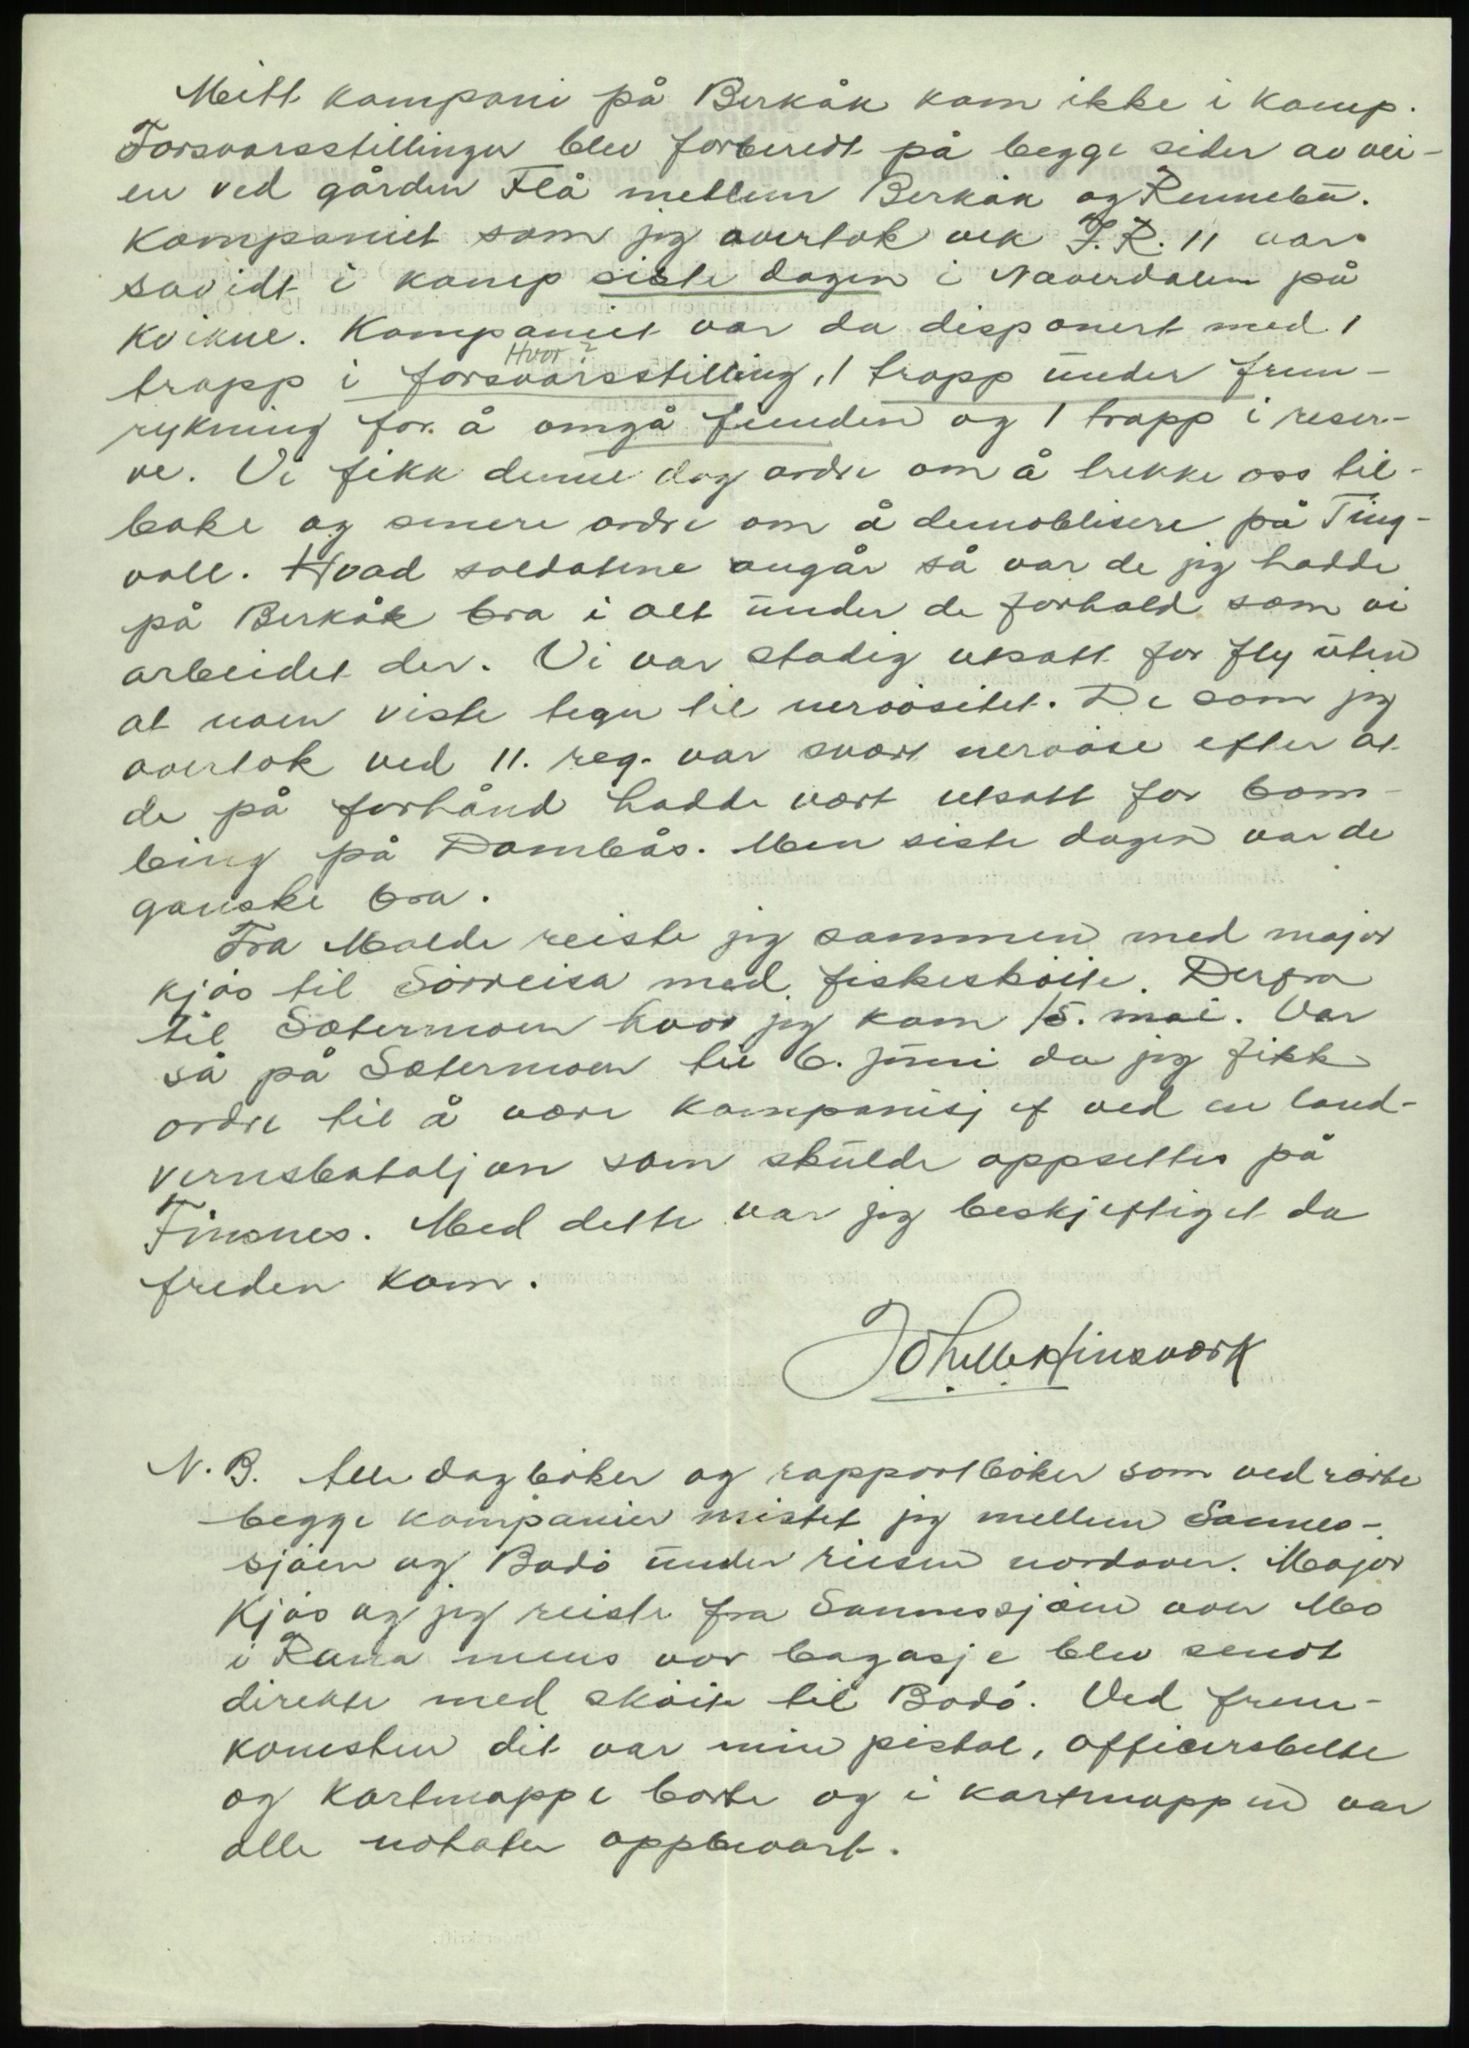 Mitt kompani på Berkåk kom ikke i kamp.
Forsvarsstillinger blev forberedt på begge sider av vei-
en ved gården Flå mellem Berkåk og Rennebu.
Kompaniet som jeg overtok ved I.R. 11 var
såvidt i kamp siste dagen i Naverdalen på
Kvikne. Kompaniet var da disponert med 1
Hvor?
tropp i forsvarsstilling, 1 tropp under frem-
rykning for å omgå fienden og 1 tropp i reser-
ve. Vi fikk denne dag ordre om å trekke oss til-
bake og senere ordre om å demoblisere på Ting-
voll. Hvad soldatene angår så var de jeg hadde
på Berkåk bra i alt under de forhold som vi
arbeidet der. Vi var stadig utsatt for fly uten
at noen viste tegn til nervøsitet. De som jeg
overtok ved 11. reg. var svært nervøse efter at
de på forhånd hadde vært utsatt for bom-
bing på Dombås. Men siste dagen var de
ganske bra.
Fra Molde reiste jeg sammen med major
Kjøs til Sørreisa med fiskeskøite. Derfra
til Sætermoen hvor jeg kom 15. mai. Var
så på Sætermoen til 6. juni da jeg fikk
ordre til å være kompanisjef ved en land-
vernsbataljon som skulde oppsettes på
Finsnes. Med dette var jeg beskjeftiget da
freden kom.
N.B. Alle dagbøker og rapportbøker som vedrørte
begge kompanier mistet jeg mellem Sannes-
sjøen og Bodø under reisen nordover. Major
Kjøs og jeg reiste fra Sannessjøen over Mo
i Rana mens vor bagasje blev sendt
direkte med skøite til Bodø. Ved frem-
komsten dit var min pistol, officersbelte
og kartmappe borte og i kartmappen var
alle notater oppbevart.